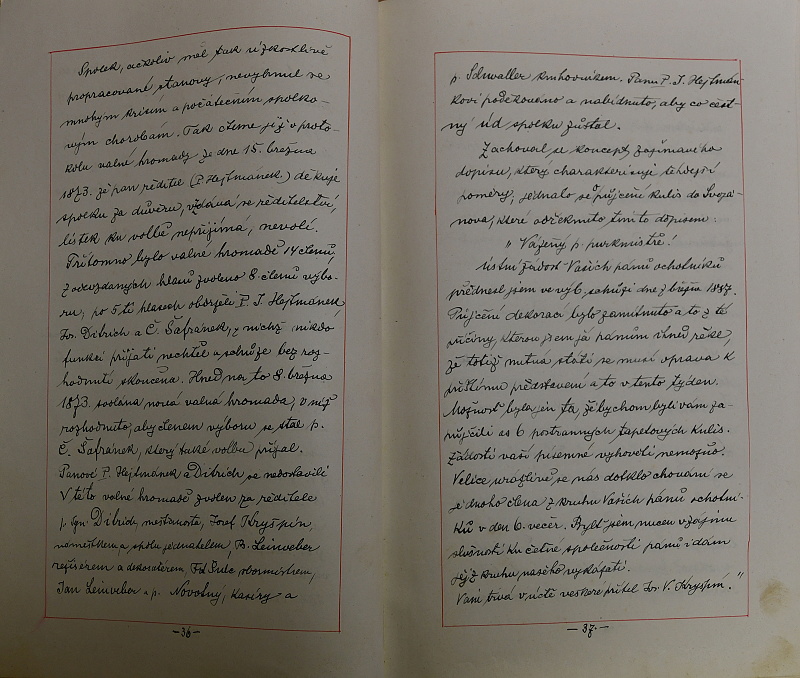 Spolek, ačkoliv měl tak úzkostlivě
propracované stanovy, nevyhnul se
mnohým krisím a počátečním spolko-
vým chorobám. Tak čteme již v proto-
kolu valné hromady ze dne 15. března
1873. že pan ředitel (P. Hejtmánek) děkuje
spolku za důvěru, vzdává se ředitelství,
lístek ku volbě nepřijímá, nevolí.
Přítomno bylo valné hromadě 14 členů,
z odevzdaných hlasů zvoleno 8 členů výbo-
ru, po 5ti hlasech obdrželi P. J. Hejtmánek,
Jos. Ditrich a Č. Šafránek, z nichž nikdo
funkci přijati nechtěl a schůze bez roz-
hodnutí skončena. Hned na to 8. března
1873. svolána nová valná hromada, v níž
rozhodnuto, aby členem výboru se stal p.
Č. Šafránek, který také volbu přijal.
Panové P. Hejtmánek a Ditrich se nedostavili
V této valné hromadě zvolen za ředitele
p. Ign. Ditrich, měšťanosta, Josef Kryšpín,
náměstkem a spolu jednatelem, B. Leinveber
režisérem a dekoratérem, Fd. Šulc sbormistrem,
Jan Leinveber a p. Novotný, kasíry a
-36-
p. Schwaller knihovníkem. Panu P. J. Hejtmán-
kovi poděkováno a nabídnuto, aby co čest-
ný úd spolku zůstal.
Zachoval se koncept zajímavého
dopisu, který charakterisuje tehdejší
poměry, jednalo se o půjčení kulis do Svojá-
nova, které odřeknuto tímto dopisem:
„Vážený p. purkmistře!
Ústní žádost Vašich pánů ochotníků
přednesl jsem ve výb. schůzi dne 7 března 1887.
Půjčení dekorací bylo zamítnuto a to z té
příčiny, kterou jsem já pánům ihned řekl,
že totiž nutná státi se musí oprava k
příštímu představení a to v tento týden.
Možnost byla jen ta, že bychom byli vám za-
půjčili as 6 postranných tapetových kulis.
Žádosti vaší písemné vyhověti nemožno.
Velice urážlivě se nás dotklo chování se
jednoho člena z kruhu Vašich pánů ochotní-
ků v den 6. večer. Byltˇ jsem nucen v zájmu
slušnosti ku četné společnosti pánů i dám
jej z kruhu našeho vykázati.
Vám trvá v úctě veškeré přítel Jos. V. Kryšpín."
-37-